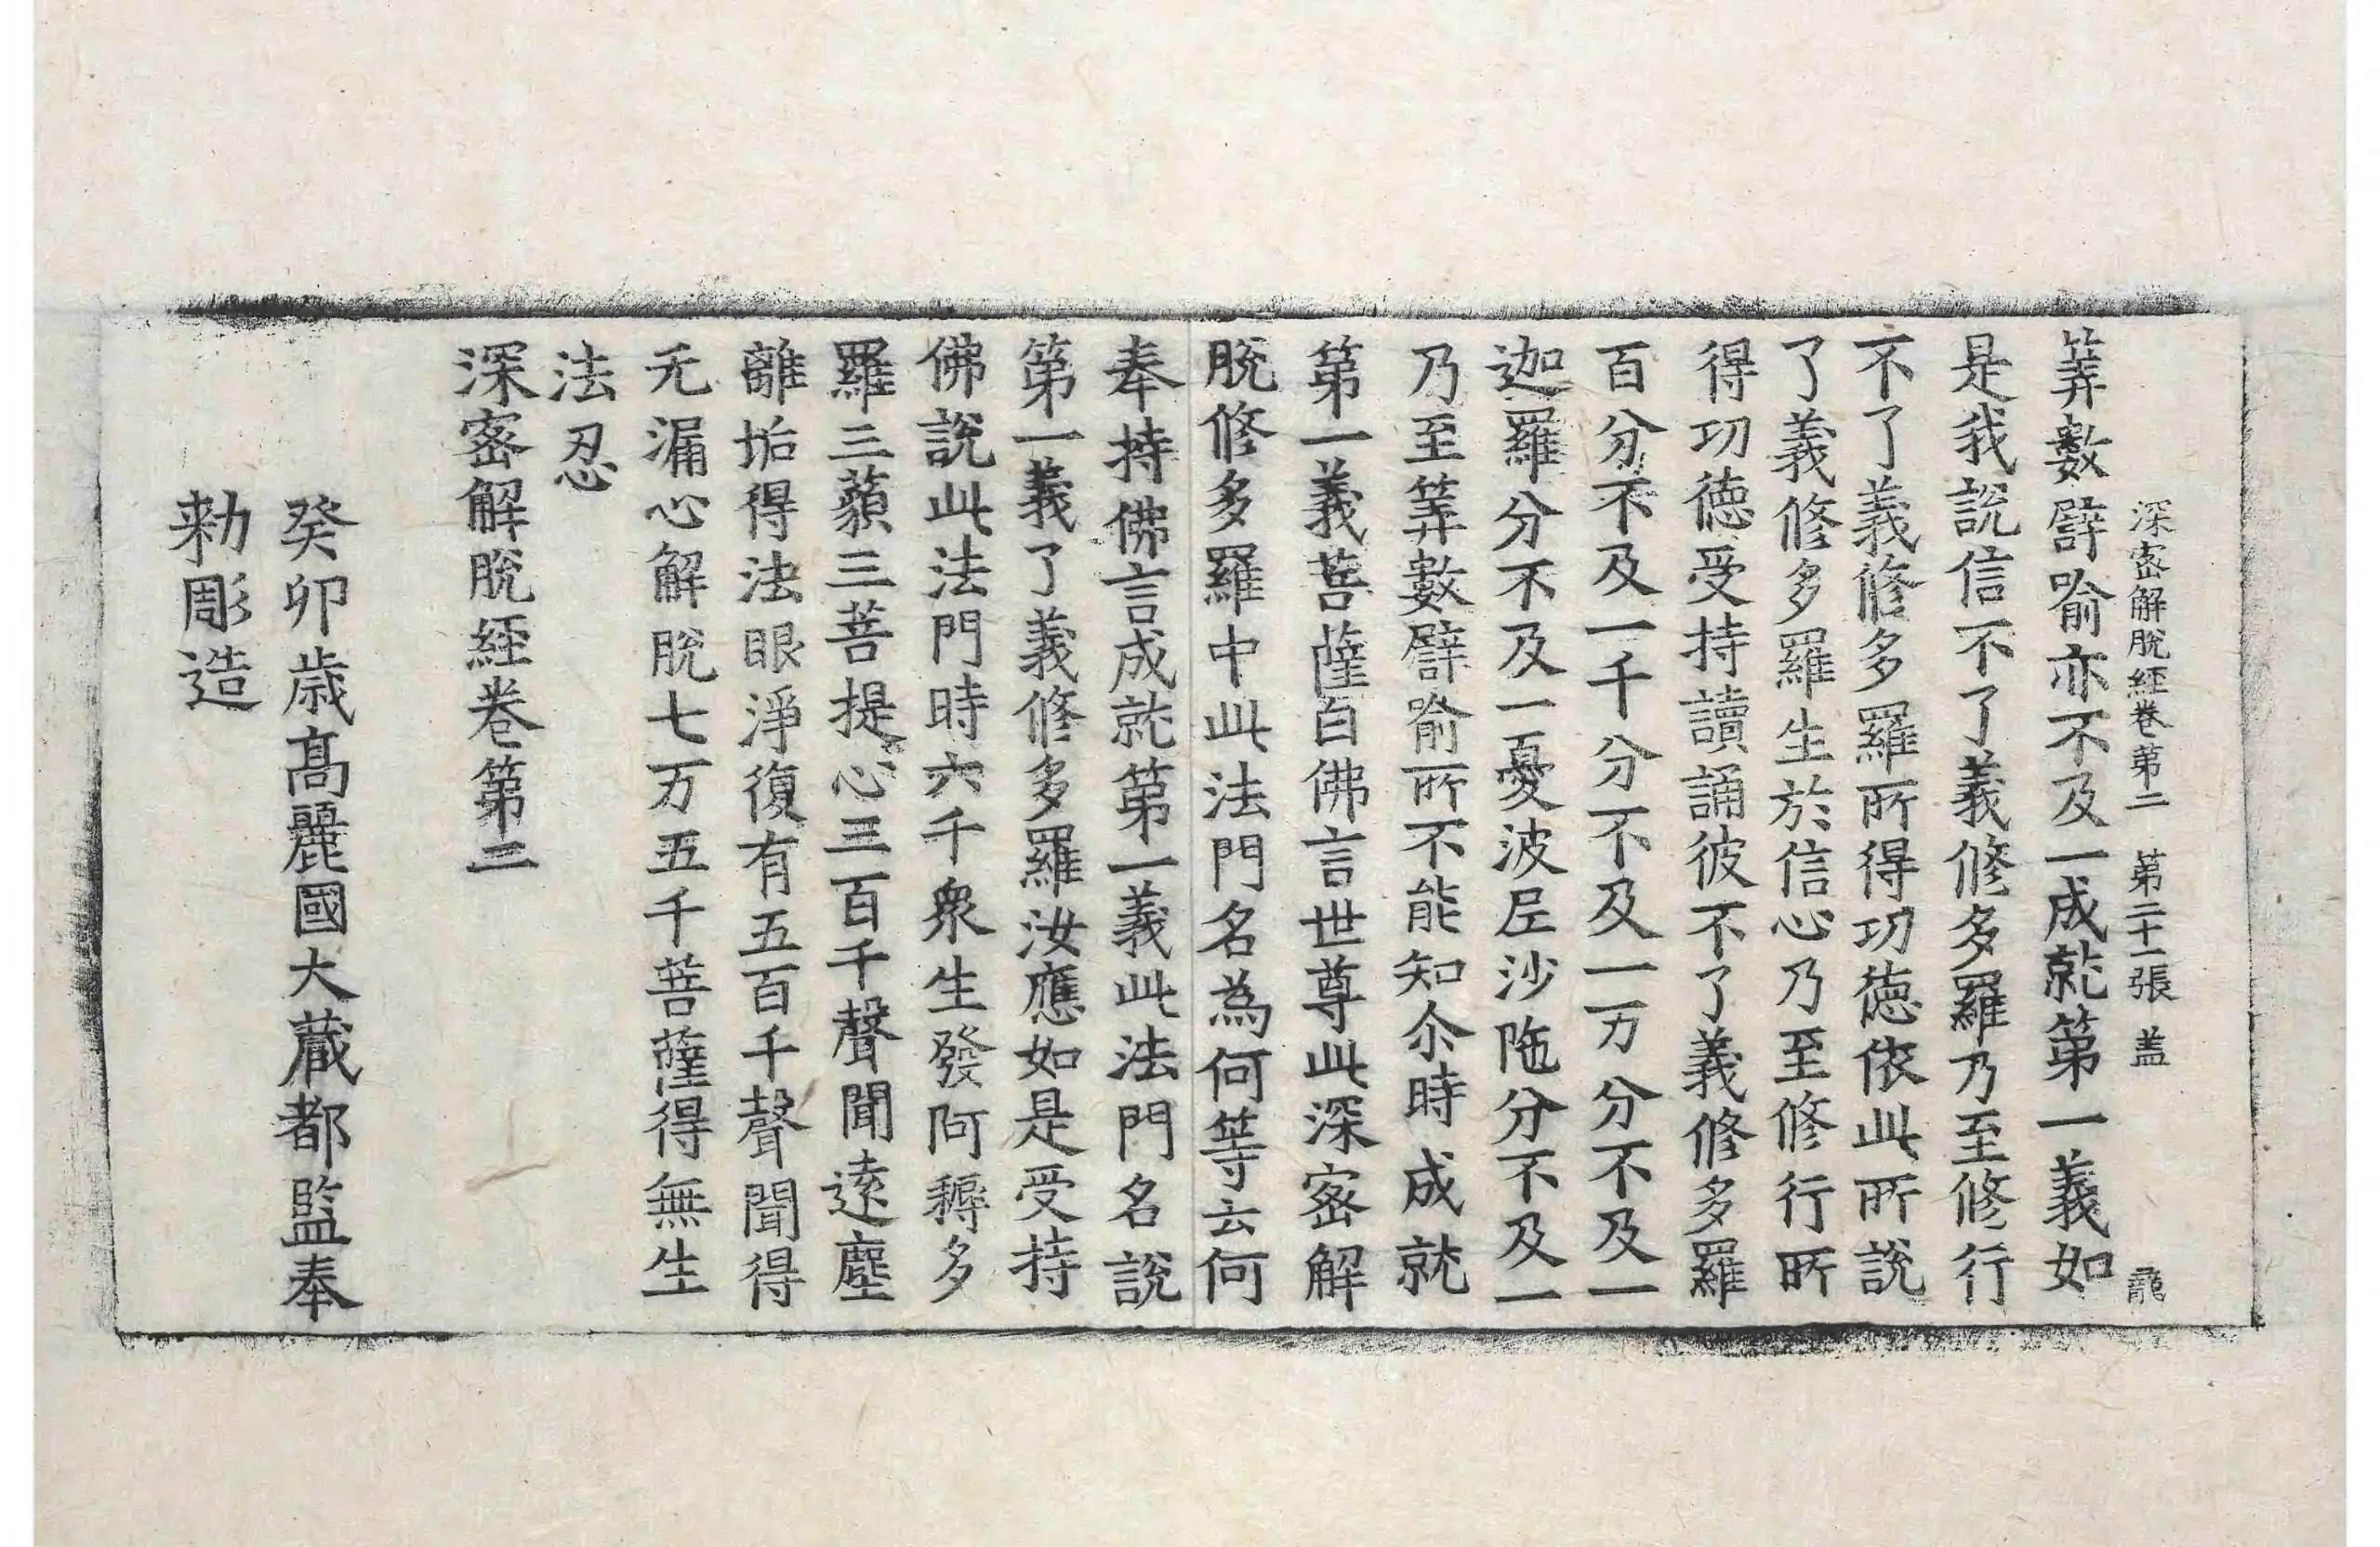 深密解脫經卷第二　第二十一張　盖　龍
筭數譬喻亦不及一成就第一義如
是我說信不了義修多羅乃至修行
不了義修多羅所得功德依此所說
了義修多羅生於信心乃至修行所
得功德受持讀誦彼不了義修多羅
百分不及一千分不及一万分不及一
迦羅分不及一憂波尼沙陁分不及一
乃至筭數譬喻所不能知尒時成就
第一義菩薩白佛言世尊此深密解
脫修多羅中此法門名為何等云何
奉持佛言成就第一義此法門名說
第一義了義修多羅汝應如是受持
佛說此法門時六千衆生發阿耨多
羅三藐三菩提心三百千聲聞遠塵
離垢得法眼淨復有五百千聲聞得
无漏心解脫七万五千菩薩得無生
法忍
深密解脫經卷第二
癸卯歲高麗國大藏都監奉
勅彫造